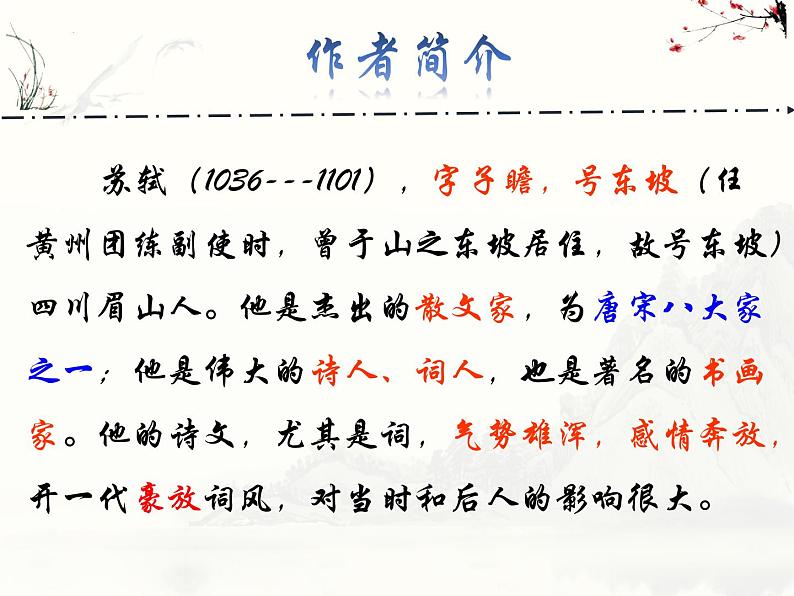 作者简介
苏轼（1036---1101），字子瞻，号东坡（任
黄州团练副使时，曾于山之东坡居住，故号东坡）
四川眉山人。他是杰出的散文家，为唐宋八大家
之一；他是伟大的诗人、词人，也是著名的书画
家。他的诗文，尤其是词，气势雄浑，感情奔放，
开一代豪放词风，对当时和后人的影响很大。